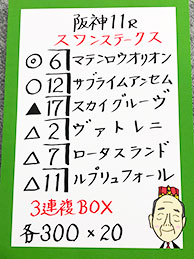 阪神11R
スワンステークス
◎6 マテンロウオリオン
○12 サブライムアンセム
▲17 スカイグルーヴ
△2 ヴァトレニ
△7 ロータスランド
△11 ルプリュフォール
3連複BOX
各300×20